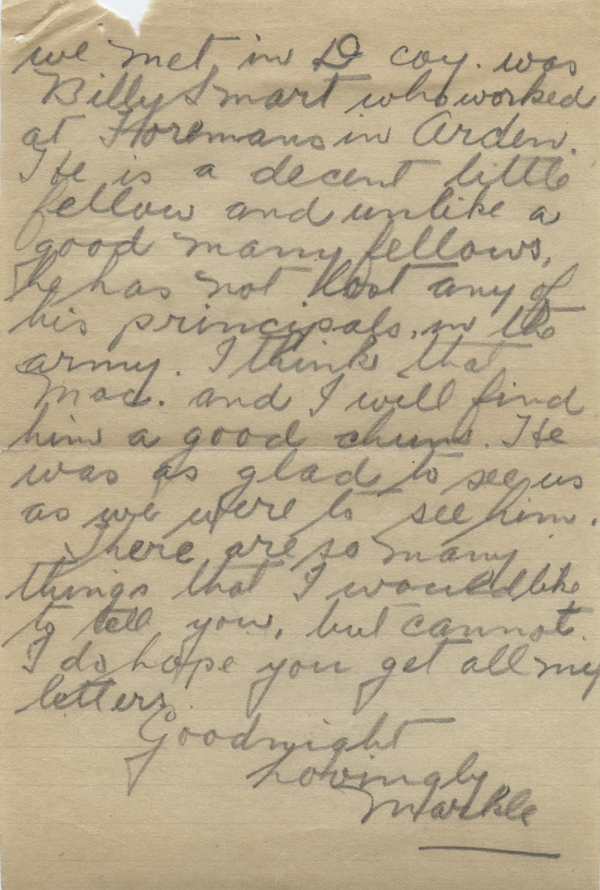 we met in D coy. was
Billy Smart who worked
at Horemans in Arden.
He is a decent little
fellow and unlike a
good many fellows,
he has not lost any of
his principals, in the
army. I think that
Mac. and I will find
him a good chum. He
was as glad to see us
as we were to see him.
There are so many
things that I would like
to tell you, but cannot.
I do hope you get all my
letters.
Goodnight
Lovingly
Markle